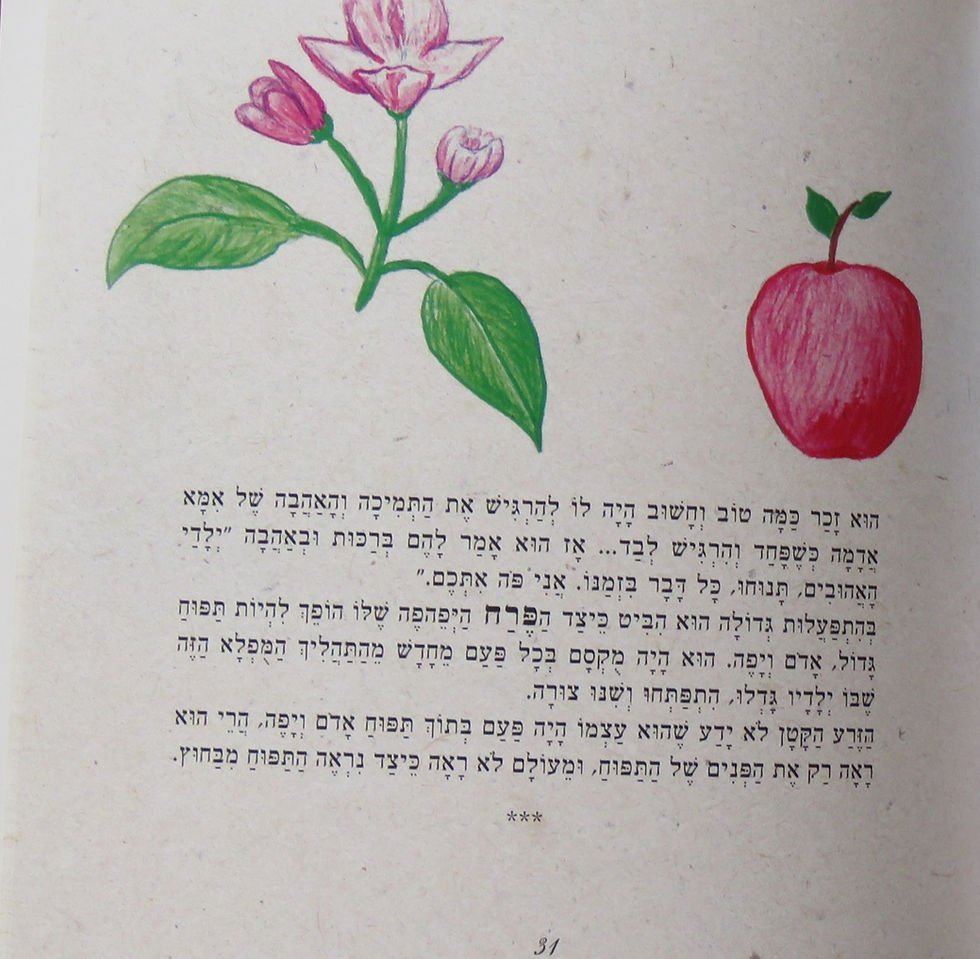 הוּא זָכַר כַּמָּה טוֹב וְחָשׁוּב הָיָה לוֹ לְהַרְגִּישׁ אֶת הַתְּמִיכָה וְהָאַהֲבָה שֶׁל אִמָּא
אֲדָמָה כְּשֶׁפָּחַד וְהִרְגִּישׁ לְבַד... אָז הוּא אָמַר לָהֶם בְּרַכּוּת וּבְאַהֲבָה "יְלָדַי
הָאֲהוּבִים, תָּנוּחוּ, כָּל דָּבָר בִּזְמַנּוֹ. אֲנִי פֹּה אִתְּכֶם."
בְּהִתְפַּעֲלוּת גְּדוֹלָה הוּא הִבִּיט כֵּיצַד הַפֶּרַח הַיְּפֵהפֶה שֶׁלּוֹ הוֹפֵךְ לִהְיוֹת תַּפּוּחַ
גָּדוֹל, אָדֹם וְיָפֶה. הוּא הָיָה מֻקְסָם בְּכָל פַּעַם מֵחָדָשׁ מֵהַתַּהֲלִיךְ הַמֻּפְלָא הַזֶּה
שֶׁבּוֹ יְלָדָיו גָּדְלוּ, הִתְפַּתְּחוּ וְשִׁנּוּ צוּרָה.
הַזֶּרַע הַקָּטָן לֹא יָדַע שֶׁהוּא עַצְמוֹ הָיָה פַּעַם בְּתוֹךְ תַּפּוּחַ אָדֹם וְיָפֶה, הֲרֵי הוּא
רָאָה רַק אֶת הַפְּנִים שֶׁל הַתַּפּוּחַ, וּמֵעוֹלָם לֹא רָאָה כֵּיצַד נִרְאֶה הַתַּפּוּחַ מִבַּחוּץ.
***
31